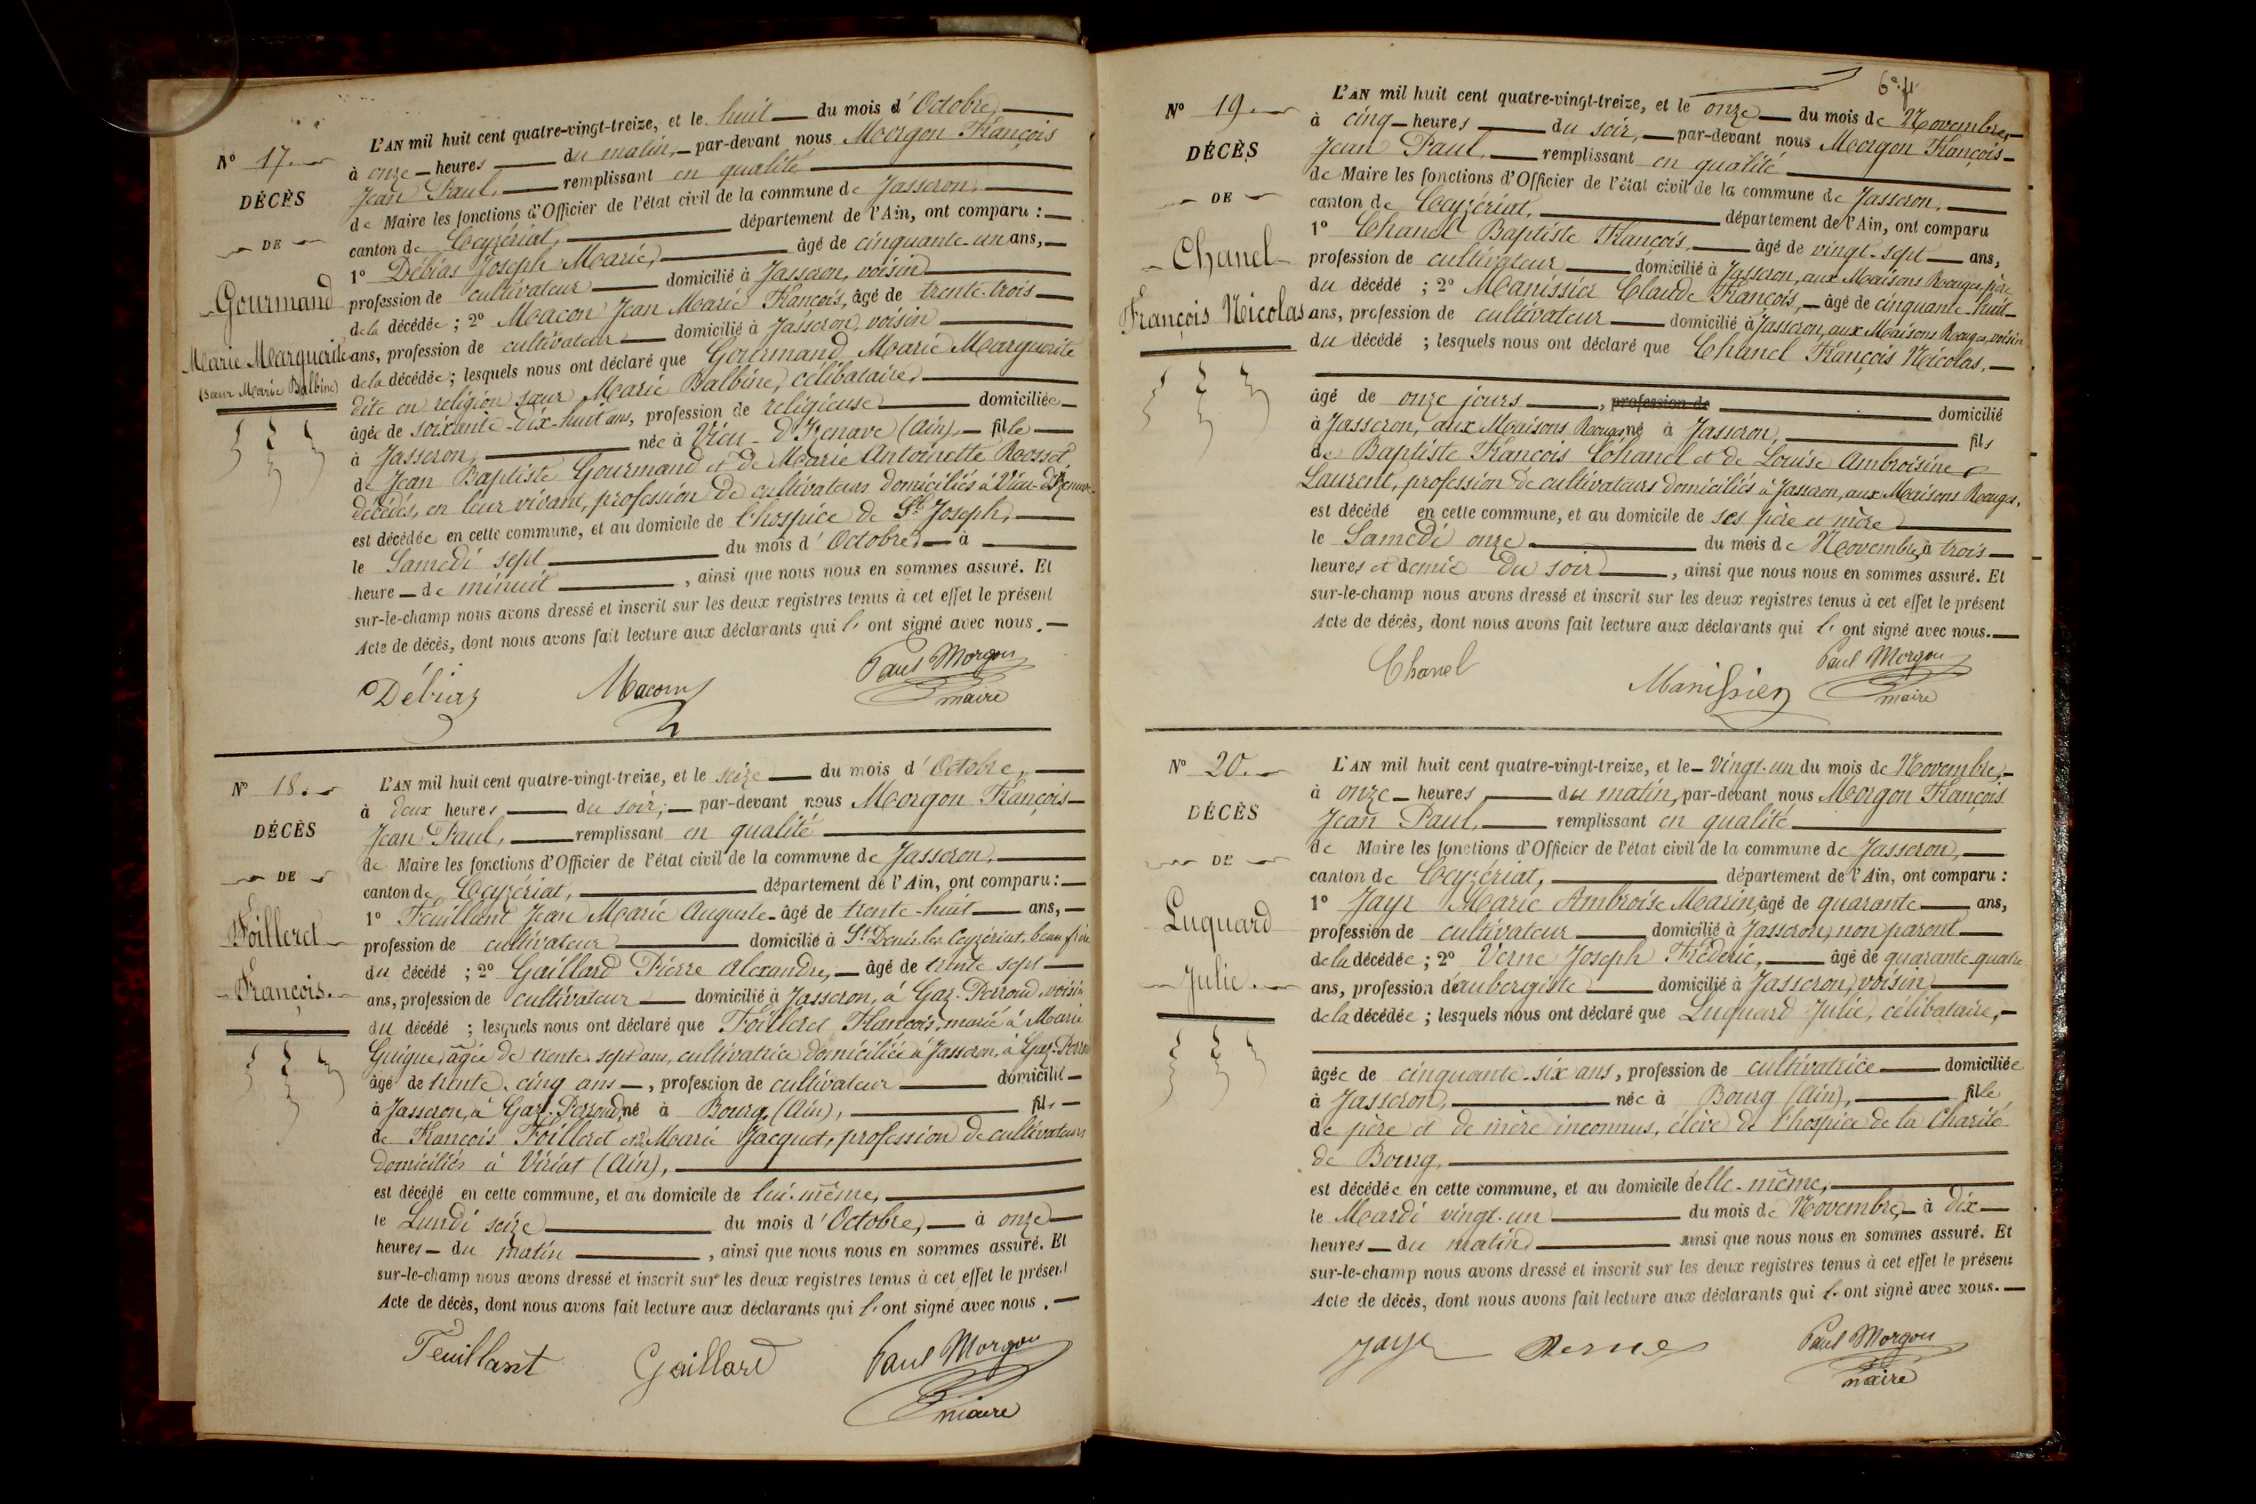 N° 17.
DÉCÈS
DE
Gourmand
Marie Marguerite
(sœur Marie Balbine)
L'AN mil huit cent quatre-vingt-treize, et le huit du mois d'Octobre
à onze heures du matin, par-devant nous Morgon François
Jean Paul, remplissant en qualité
de Maire les fonctions d'Officier de l'état civil de la commune de Jasseron,
canton de Ceyzériat, département de l'Ain, ont comparu :
1° Débias Joseph Marie, âgé de cinquante-un ans,
profession de cultivateur domicilié à Jasseron, voisin
de la décédée ; 2° Macon Jean Marie François, âgé de trente-trois
ans, profession de cultivateur domicilié à Jasseron, voisin
de la décédée ; lesquels nous ont déclaré que Gourmand Marie Marguerite
dite en religion sœur Marie Balbine, célibataire,
âgée de soixante-dix-huit ans, profession de religieuse domiciliée
à Jasseron, née à Vieu-d'Izenave (Ain), fille
de Jean Baptiste Gourmand et de Marie Antoinette Rosset
décédés, en leur vivant, profession de cultivateurs domiciliés à Vieu-d'Izenave
est décédée en cette commune, et au domicile de l'hospice de St Joseph,
le Samedi sept du mois d'Octobre, à
heure de minuit, ainsi que nous nous en sommes assuré. Et
sur-le-champ nous avons dressé et inscrit sur les deux registres tenus à cet effet le présent
Acte de décès, dont nous avons fait lecture aux déclarants qui l' ont signé avec nous.
Débias Macon Paul Morgon
maire
N° 18.
DÉCÈS
DE
Foilleret
François.
L'AN mil huit cent quatre-vingt-treize, et le seize du mois d'Octobre,
à deux heures du soir, par-devant nous Morgon François
Jean Paul, remplissant en qualité
de Maire les fonctions d'Officier de l'état civil de la commune de Jasseron,
canton de Ceyzériat, département de l'Ain, ont comparu :
1° Feuillant Jean Marie Auguste âgé de trente-huit ans,
profession de cultivateur domicilié à St Denis les Ceyzériat, beau frère
du décédé ; 2° Gaillard Pierre Alexandre, âgé de trente sept
ans, profession de cultivateur domicilié à Jasseron, à Gaz-Perroud, voisin
du décédé ; lesquels nous ont déclaré que Foilleret François, marié à Marie
Guigue, âgée de trente-sept ans, cultivatrice domiciliée à Jasseron, à Gaz-Perroud
âgé de trente-cinq ans, profession de cultivateur domicilié
à Jasseron, à Gaz-Perroud, né à Bourg, (Ain), fils
de François Foilleret et de Marie Jacquet, profession de cultivateurs
domiciliés à Viriat (Ain),
est décédé en cette commune, et au domicile de lui-même,
le Lundi seize du mois d'Octobre, à onze
heures du matin, ainsi que nous nous en sommes assuré. Et
sur-le-champ nous avons dressé et inscrit sur les deux registres tenus à cet effet le présent
Acte de décès, dont nous avons fait lecture aux déclarants qui l' ont signé avec nous.
Feuillant Gaillard Paul Morgon
maire
N° 19.
DÉCÈS
DE
Chanel
François Nicolas
L'AN mil huit cent quatre-vingt-treize, et le onze du mois de Novembre,
à cinq heures du soir, par-devant nous Morgon François
Jean Paul, remplissant en qualité
de Maire les fonctions d'Officier de l'état civil de la commune de Jasseron,
canton de Ceyzériat, département de l'Ain, ont comparu
1° Chanel Baptiste François, âgé de vingt-sept ans,
profession de cultivateur domicilié à Jasseron, aux Maisons Rouges, père
du décédé ; 2° Manissier Claude François, âgé de cinquante-huit
ans, profession de cultivateur domicilié à Jasseron, aux Maisons Rouges, voisin
du décédé ; lesquels nous ont déclaré que Chanel François Nicolas,
âgé de onze jours, profession de domicilié
à Jasseron, aux Maisons Rouges né à Jasseron, fils
de Baptiste François Chanel et de Louise Ambroisine
Laurent, profession de cultivateurs domiciliés à Jasseron, aux Maisons Rouges,
est décédé en cette commune, et au domicile de ses père et mère
le Samedi onze du mois de Novembre, à trois
heures et demie du soir, ainsi que nous nous en sommes assuré. Et
sur-le-champ nous avons dressé et inscrit sur les deux registres tenus à cet effet le présent
Acte de décès, dont nous avons fait lecture aux déclarants qui l' ont signé avec nous.
Chanel Manissier Paul Morgon
maire
N° 20.
DÉCÈS
DE
Luquard
Julie.
L'AN mil huit cent quatre-vingt-treize, et le vingt-un du mois de Novembre,
à onze heures du matin, par-devant nous Morgon François
Jean Paul, remplissant en qualité
de Maire les fonctions d'Officier de l'état civil de la commune de Jasseron,
canton de Ceyzériat, département de l'Ain, ont comparu :
1° Jayr Marie Ambroise Marin, âgé de quarante ans,
profession de cultivateur domicilié à Jasseron, non parent
de la décédée ; 2° Verne Joseph Frédéric, âgé de quarante quatre
ans, profession d'aubergiste domicilié à Jasseron, voisin
de la décédée ; lesquels nous ont déclaré que Luquard Julie, célibataire,
âgée de cinquante-six ans, profession de cultivatrice domiciliée
à Jasseron, née à Bourg (Ain), fille
de père et de mère inconnus, élève de l'hospice de la Charité
de Bourg,
est décédée en cette commune, et au domicile d'elle-même,
le Mardi vingt-un du mois de Novembre, à dix
heures du matin ainsi que nous nous en sommes assuré. Et
sur-le-champ nous avons dressé et inscrit sur les deux registres tenus à cet effet le présent
Acte de décès, dont nous avons fait lecture aux déclarants qui l' ont signé avec nous.
Jayr Verne Paul Morgon
maire